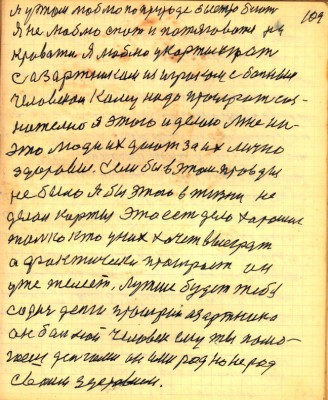 109
я утром люблю по природе быстро встат
Я не люблю спат и потягиватся на
кровати Я люблю у карти играт
с азартником из игроком с болним
человеком Кому надо проиграт соз-
нателно Я этого и делаю Мне ни-
это люди их денги за их лично
здоровие. Если бы в этом правды
не было Я бы этого в жизни не
делал Карты Это ест дело хорошие
толко Кто у них хочет выиграт
а фрактически проиграет он
уже жалеет. Лутше будет тебе
садис денги проиграй азартнико
он болной человек ему ты помо-
гаеш денгами он или рад но не рад
своим здоровием.